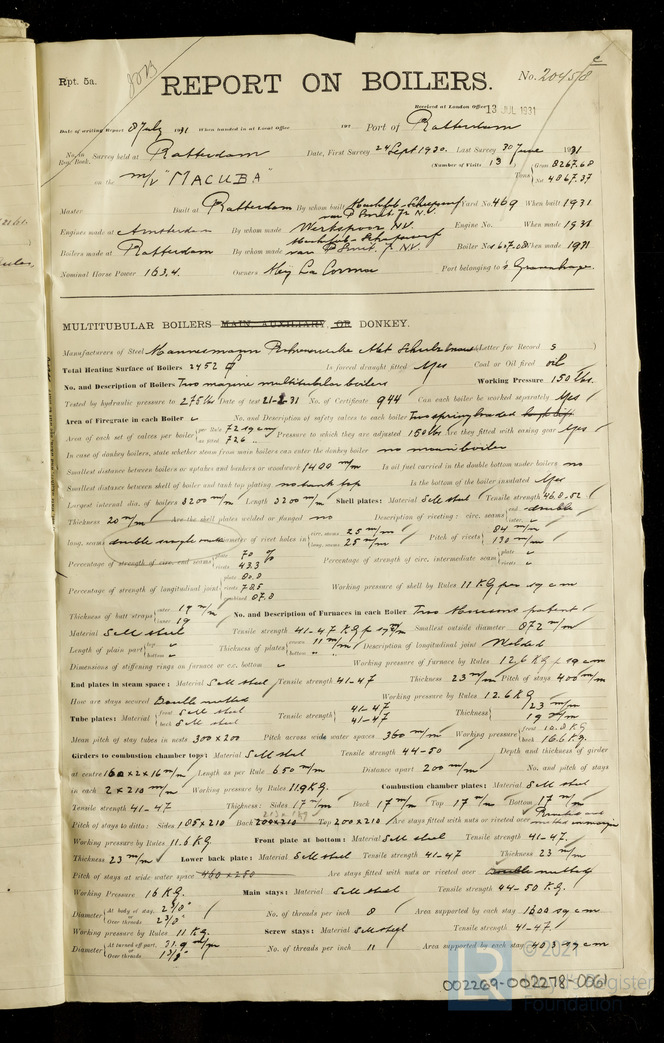 Rpt. 5a.
REPORT ON BOILERS.
No. 20458
Received at London Office 13 JUL 1931
Date of writing Report 8 July 1931 When handed in at Local Office 192 Port of Rotterdam
No. in Reg. Book. Survey held at Rotterdam Date, First Survey 24 Sept 1930. Last Survey 30 June 1931
(Number of Visits 13)
on the m/v "MACUBA" Tons { Gross 8267.68
Net 4867.37
Master Built at Rotterdam By whom built Yard No. 469 When built 1931
Engines made at Amsterdam By whom made Werkspoor N.V. Engine No. When made 1931
Boilers made at Rotterdam By whom made Boiler No. When made 1931
Nominal Horse Power 163.4. Owners Mij La Corona Port belonging to 's Gravenhage.
MULTITUBULAR BOILERS MAIN, AUXILIARY, OR DONKEY.
Manufacturers of Steel (Letter for Record S)
Total Heating Surface of Boilers 2452 Is forced draught fitted Yes Coal or Oil fired oil
No. and Description of Boilers Two marine multitubular boilers Working Pressure 150 lbs.
Tested by hydraulic pressure to 275 lbs Date of test 21-2-31 No. of Certificate 944 Can each boiler be worked separately Yes
Area of Firegrate in each Boiler No. and Description of safety valves to each boiler Two spring loaded
Area of each set of valves per boiler { per Rule 72 sq cm
as fitted 726 Pressure to which they are adjusted 150 lbs Are they fitted with easing gear Yes
In case of donkey boilers, state whether steam from main boilers can enter the donkey boiler no main boiler
Smallest distance between boilers or uptakes and bunkers or woodwork 1400 m/m Is oil fuel carried in the double bottom under boilers no
Smallest distance between shell of boiler and tank top plating no tank top Is the bottom of the boiler insulated Yes
Largest internal dia. of boilers 3200 m/m Length 3200 m/m Shell plates: Material S.M. steel Tensile strength 46.0-52
Thickness 20 m/m Are the shell plates welded or flanged no Description of riveting: circ. seams { end double
inter.
long. seams Diameter of rivet holes in { circ. seams 25 m/m
long. seams 25 m/m Pitch of rivets { 84 m/m
130 m/m
Percentage of strength of circ. end seams { plate 70 %
rivets 43.3 Percentage of strength of circ. intermediate seam { plate
rivets
Percentage of strength of longitudinal joint { plate 80.8
rivets 78.5
combined 87.8 Working pressure of shell by Rules 11 KG per sq cm
Thickness of butt straps { outer 19 m/m
inner 19 No. and Description of Furnaces in each Boiler Two Morisons patent
Material S.M. steel Tensile strength 41-47 KG p sq m/m Smallest outside diameter 872 m/m
Length of plain part { top
bottom Thickness of plates { crown 11 m/m
bottom Description of longitudinal joint Welded
Dimensions of stiffening rings on furnace or c.c. bottom Working pressure of furnace by Rules 12.6 KG p sq cm
End plates in steam space: Material S.M. steel Tensile strength 41-47 Thickness 23 m/m Pitch of stays 400 m/m
How are stays secured Double nutted Working pressure by Rules 12.6 KG
Tube plates: Material { front S.M. steel
back S.M. steel Tensile strength { 41-47
41-47 Thickness { 23 m/m
19 m/m
Mean pitch of stay tubes in nests 300 x 200 Pitch across wide water spaces 360 m/m Working pressure { front 10.3 KG
back 16.6 KG.
Girders to combustion chamber tops: Material S.M. steel Tensile strength 44-50 Depth and thickness of girder
at centre 160 x 2 x 16 m/m Length as per Rule 650 m/m Distance apart 200 m/m No. and pitch of stays
in each 2 x 210 m/m Working pressure by Rules 11.9 KG. Combustion chamber plates: Material S.M. steel
Tensile strength 41-47 Thickness: Sides 17 m/m Back 17 m/m Top 17 m/m Bottom 17 m/m
Pitch of stays to ditto: Sides 185 x 210 Back 200 x 210 Top 200 x 210 Are stays fitted with nuts or riveted over
Working pressure by Rules 11.6 KG. Front plate at bottom: Material S.M. steel Tensile strength 41-47.
Thickness 23 m/m Lower back plate: Material S.M. steel Tensile strength 41-47 Thickness 23 m/m
Pitch of stays at wide water space 460 x 250 Are stays fitted with nuts or riveted over Double nutted
Working Pressure 16 KG. Main stays: Material S.M. steel Tensile strength 44-50 KG.
Diameter { At body of stay, 2 7/8"
or
Over threads 2 7/8" No. of threads per inch 8 Area supported by each stay 1600 sq cm
Working pressure by Rules 11 KG. Screw stays: Material S.M. steel Tensile strength 41-47.
Diameter { At turned off part, 31.9 m/m
or
Over threads 1 3/8" No. of threads per inch 11 Area supported by each stay 403 sq cm
© 2021
Lloyd's Register
Foundation
002269-002278-0061